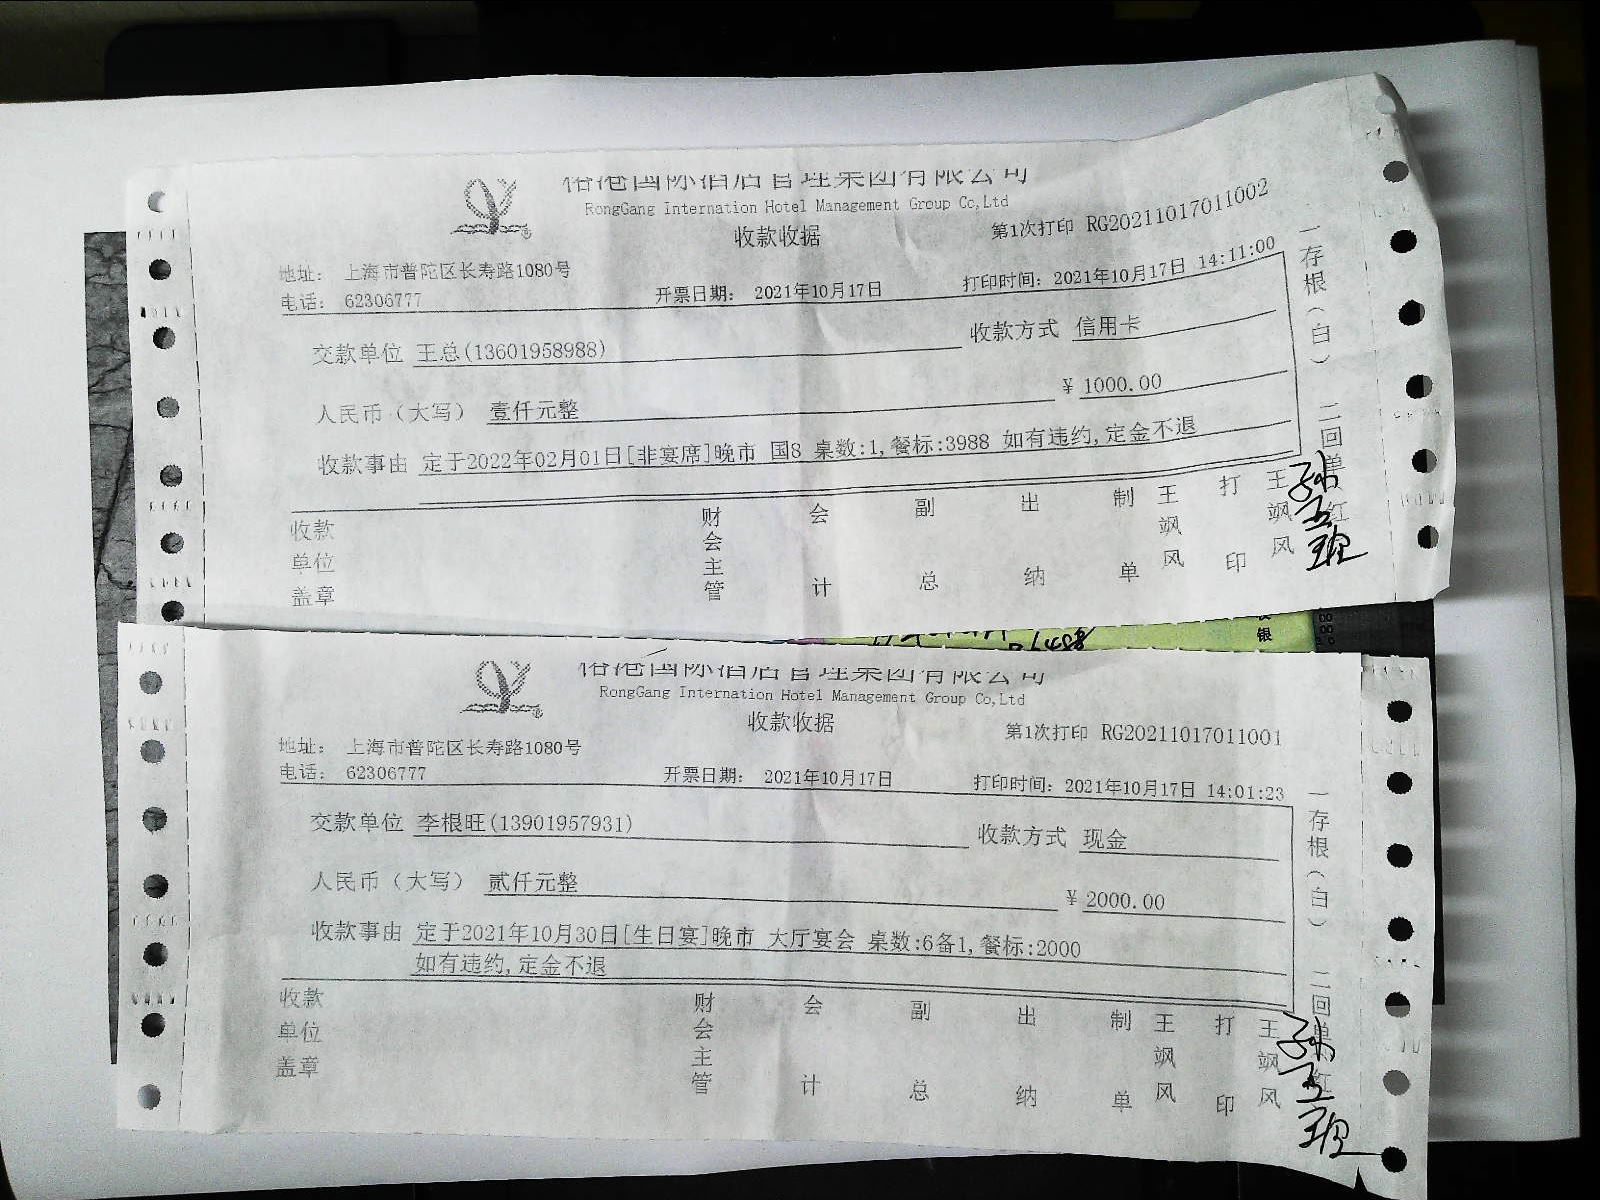 港国际酒店管理集团有限公司
RongGang Internation Hotel Management Group Co,Ltd
收款收据
第1次打印 RG20211017011002
地址： 上海市普陀区长寿路1080号
电话： 62306777
开票日期： 2021年10月17日
打印时间：2021年10月17日 14:11:00
交款单位 王总(13601958988)
收款方式 信用卡
人民币（大写） 壹仟元整
¥ 1000.00
收款事由 定于2022年02月01日[非宴席]晚市 国8 桌数:1,餐标:3988 如有违约,定金不退
收款单位盖章
财会主管
会计
副总
出纳
制单
王飒风
打印
王飒风
一存根（白） 二回单 红
港国际酒店管理集团有限公司
RongGang Internation Hotel Management Group Co,Ltd
收款收据
第1次打印 RG20211017011001
地址： 上海市普陀区长寿路1080号
电话： 62306777
开票日期： 2021年10月17日
打印时间：2021年10月17日 14:01:23
交款单位 李根旺(13901957931)
收款方式 现金
人民币（大写） 贰仟元整
¥ 2000.00
收款事由 定于2021年10月30日[生日宴]晚市 大厅宴会 桌数:6备1,餐标:2000
如有违约,定金不退
收款单位盖章
财会主管
会计
副总
出纳
制单
王飒风
打印
王飒风
一存根（白） 二回单 红
银